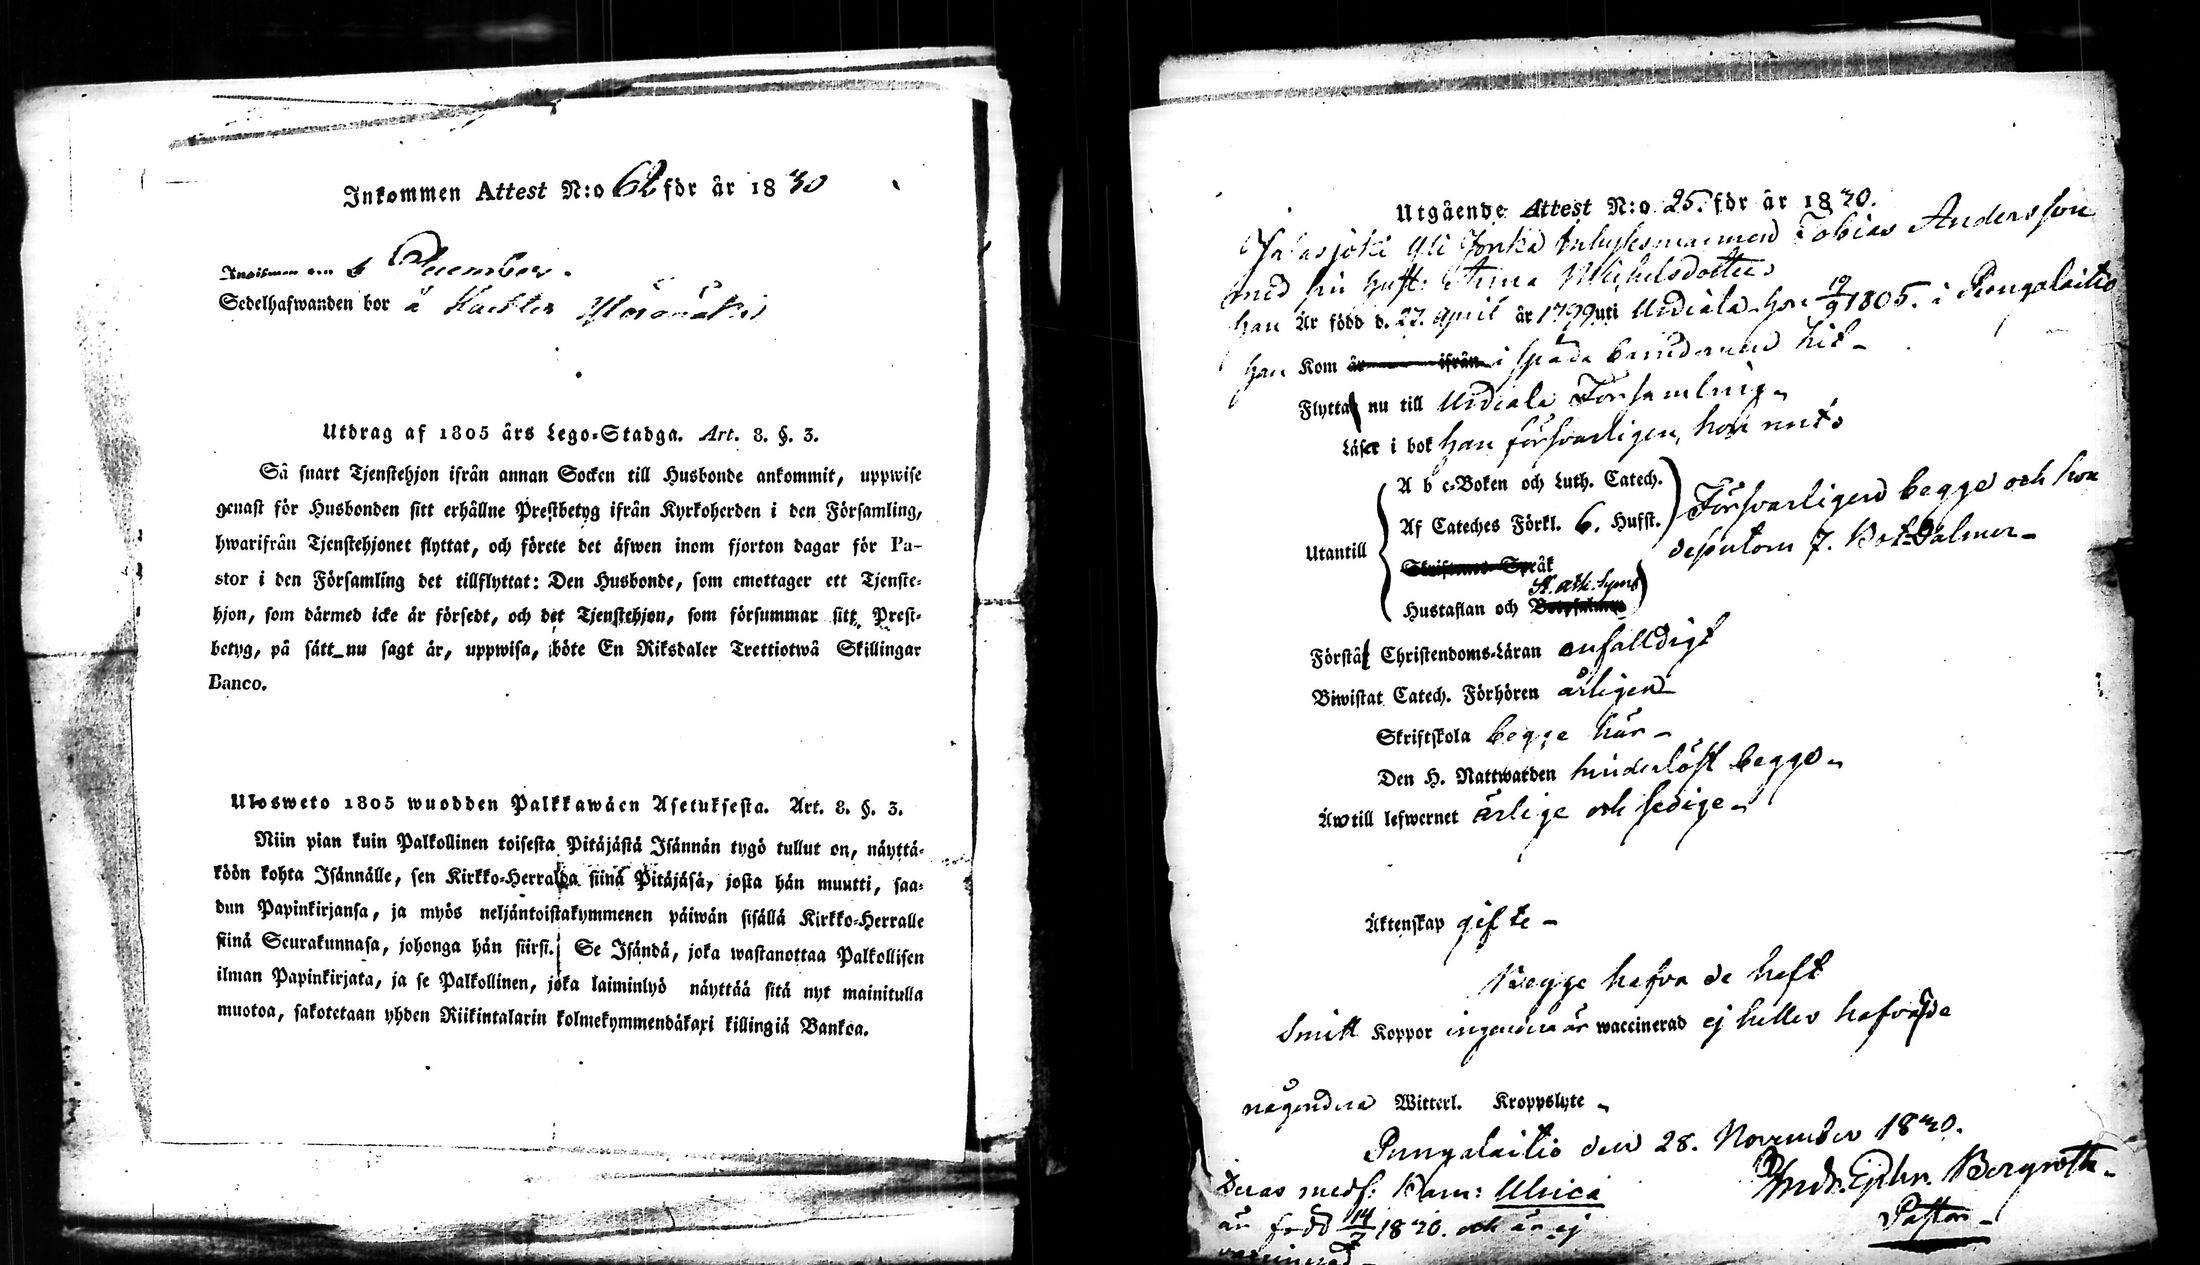 Inkommen Attest N:o 62 för år 1830
Anwiswen den 6 December.
Sedelhafwanden bor å
Utdrag af 1805 års Lego-Stadga. Art. 8. §. 3.
Så snart Tjenstehjon ifrån annan Socken till Husbonde ankommit, uppwise
genast för Husbonden sitt erhållne Prestbetyg ifrån Kyrkoherden i den Församling,
hwarifrån Tjenstehjonet flyttat, och förete det äfwen inom fjorton dagar för Pa-
stor i den Församling det tillflyttat: Den Husbonde, som emottager ett Tjenste-
hjon, som därmed icke är försedt, och det Tjenstehjon, som försummar sitt Prest-
betyg, på sätt nu sagt är, uppwisa, böte En Riksdaler Trettiotwå Skillingar
Banco.
Ulosweto 1805 wuodden Palkkawäen Asetuksesta. Art. 8. §. 3.
Niin pian kuin Palkollinen toisesta Pitäjästä Isännän tygö tullut on, näyttä-
köön kohta Isännälle, sen Kirkko-Herralda siinä Pitäjäsä, josta hän muutti, saa-
dun Papinkirjansa, ja myös neljäntoistakymmenen päiwän sisällä Kirkko-Herralle
siinä Seurakunnasa, johonga hän siirsi. Se Isändä, joka wastanottaa Palkollisen
ilman Papinkirjata, ja se Palkollinen, joka laiminlyö näyttää sitä nyt mainitulla
muotoa, sakotetaan yhden Riikintalarin kolmekymmendäkaxi killingiä Bankoa.
Utgående Attest N:o 25. för år 1830.
Jalasjoki Yli Inhysesmannen Tobias Andersson
med sin hust: Anna Michelsdotter
han Är född d. 27. April år 1799 uti Urdiala hon 19/9 1805. i Pungalaitio
han Kom år ifrån i späda barndomen hit
Flyttat nu till Urdiala Församling
Läser i bok han försvarligen, hon
Utantill
A b c-Boken och Luth. Catech.
Af Cateches Förkl. 6. Hufst.
Skriftenes Språk
Hustaflan och St. ath. symb
Försvarligen begge och hon
dessutom 7. Bot-Psalmer
Förstå Christendoms-Läran enfalldigt
Biwistat Catech. Förhören årligen
Skriftskola begge här
Den H. Nattwarden hinderlöst begge
Äwtill lefwernet ärlige och sedige
Äktenskap gifte
Begge hafva de haft
Smitt Koppor ingendera är waccinerad ej heller hafva de
någondera Witterl. Kroppslyte
Pungalaitio den 28. November 1830.
Andr. Ephr. Bergroth
Pastor
Deras medf: Barn: Ulrica
är född 14/7 1830. och är ej
vaccinerad